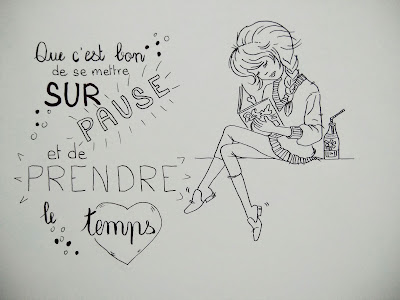 Que c'est bon
de se mettre
SUR
PAUSE
et de
PRENDRE
le temps